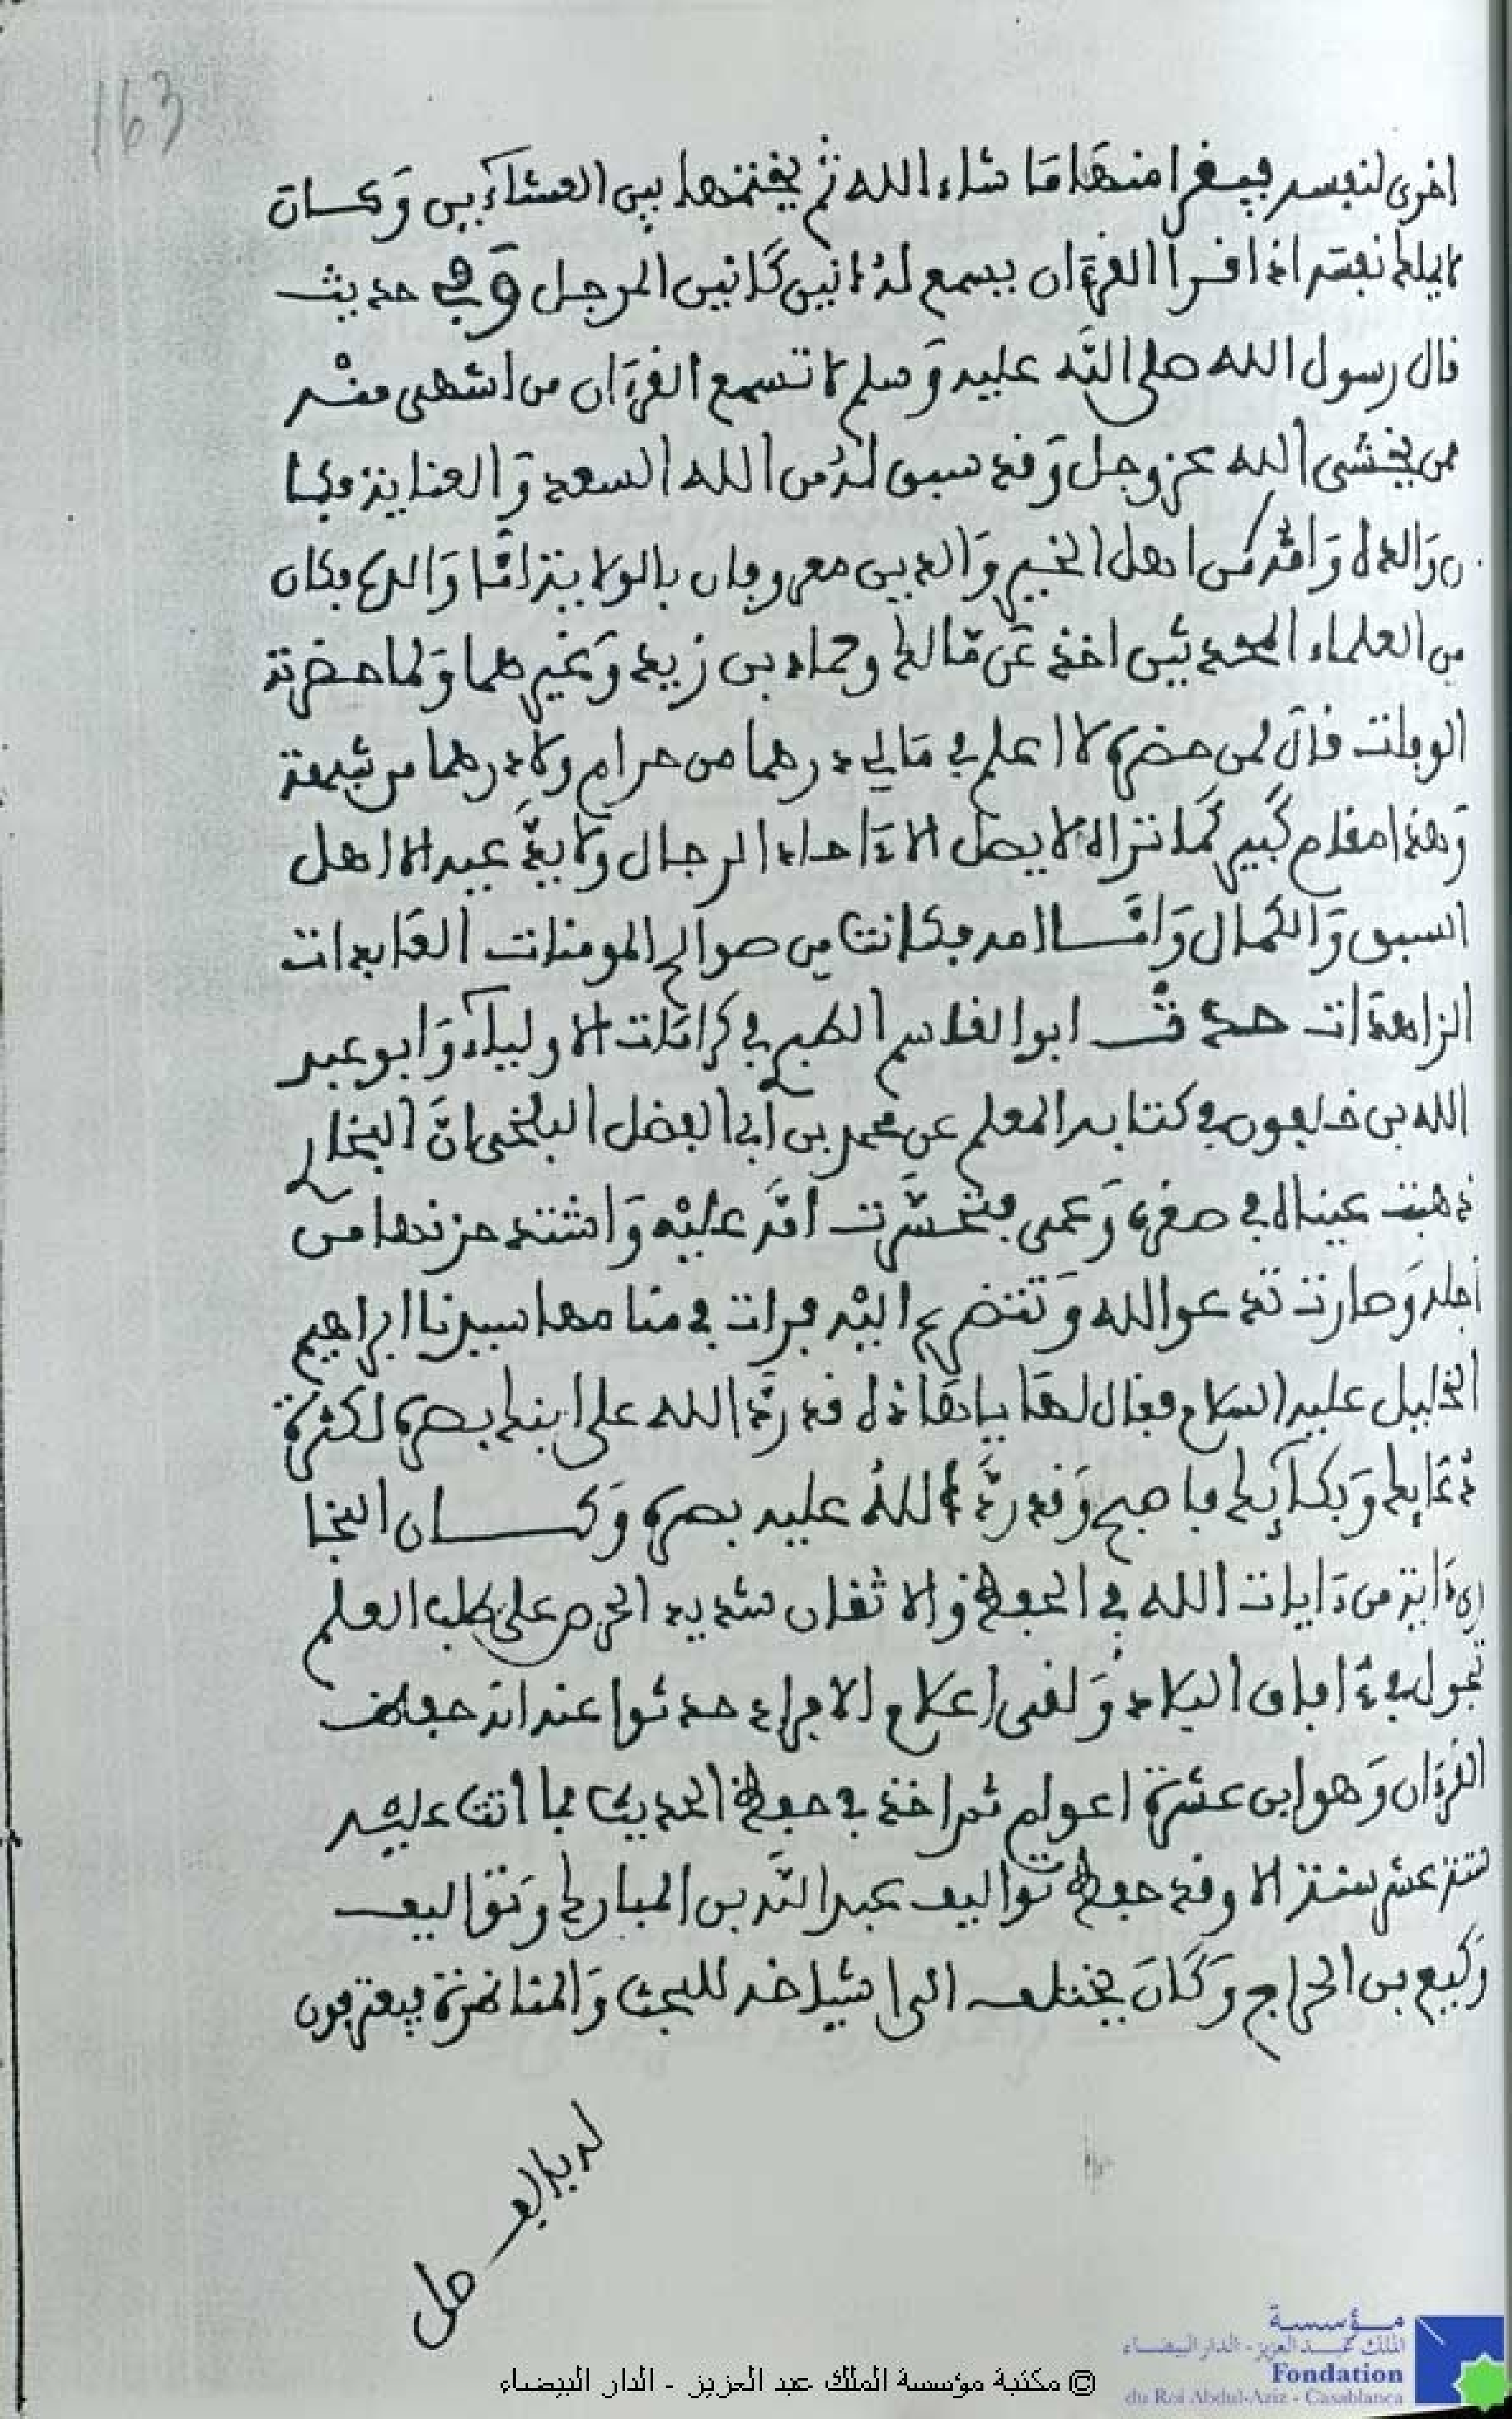 163
اخرى لنفسه فيقرا منها ما شاء الله ثم يختمها بين العشاءين وكان
لا يملك نفسه اذا قرا القرءان يسمع له انين كانين المرجل وفي حديث
قال رسول الله صلى الله عليه وسلم لا تسمع القرءان من اشهى منه
من يخشى الله عز وجل وقد سبق له من الله السعد والعناية فكا
ن والده وامه من اهل الخير والدين معروفان بالولاية اما والده فكان
من العلماء المحدثين اخذ عن مالك وحماد بن زيد وغيرهما ولما حضرته
الوفات قال لمن حضره لا اعلم في مالي درهما من حرام ولا درهما من شبهة
وهذا مقام كبير كما تراه لا يصل الا ءاحاد الرجال ولا فيه الا اهل
السبق والكمال واما امه فكانت من صوالح المومنات العابدات
الزاهدات حدث ابو القاسم الطبري في كرامات الاولياء وابو عبد
الله بن خلفون في كتابه المعلم عن محمد بن أبي الفضل البلخي ان البخاري
ذهبت عيناه في صغره وعمي فتحسرت امه عليه واشتد حزنها من
أجله وصارت تدعو الله وتتضرع اليه فرات في منامها سيدنا ابراهيم
الخليل عليه السلام فقال لها يا هاذه قد رد الله على ابنك بصره لكثرة
دعائك وبكائك فاصبح وقد رد الله عليه بصره وكان البخا
ري ءاية من ءايات الله في الحفظ والاتقان شديد الحرص على طلب العلم
تجول في ءافاق البلاد ولقي اعلام الافراد حدثوا عنه انه حفظ
القرءان وهو ابن عشرة اعوام ثم اخذ في حفظ الحديث فما اتت عليه
ستة عشر سنة الا وقد حفظ تواليف عبد الله بن المبارك وتواليف
وكيع بن الجراح وكان يختلف الى اشياخه للبحث والمناظرة فيعترفون
له بالفضل
© مكتبة مؤسسة الملك عبد العزيز - الدار البيضاء
مؤسسة
الملك عبد العزيز - الدار البيضاء
Fondation
du Roi Abdul-Aziz - Casablanca